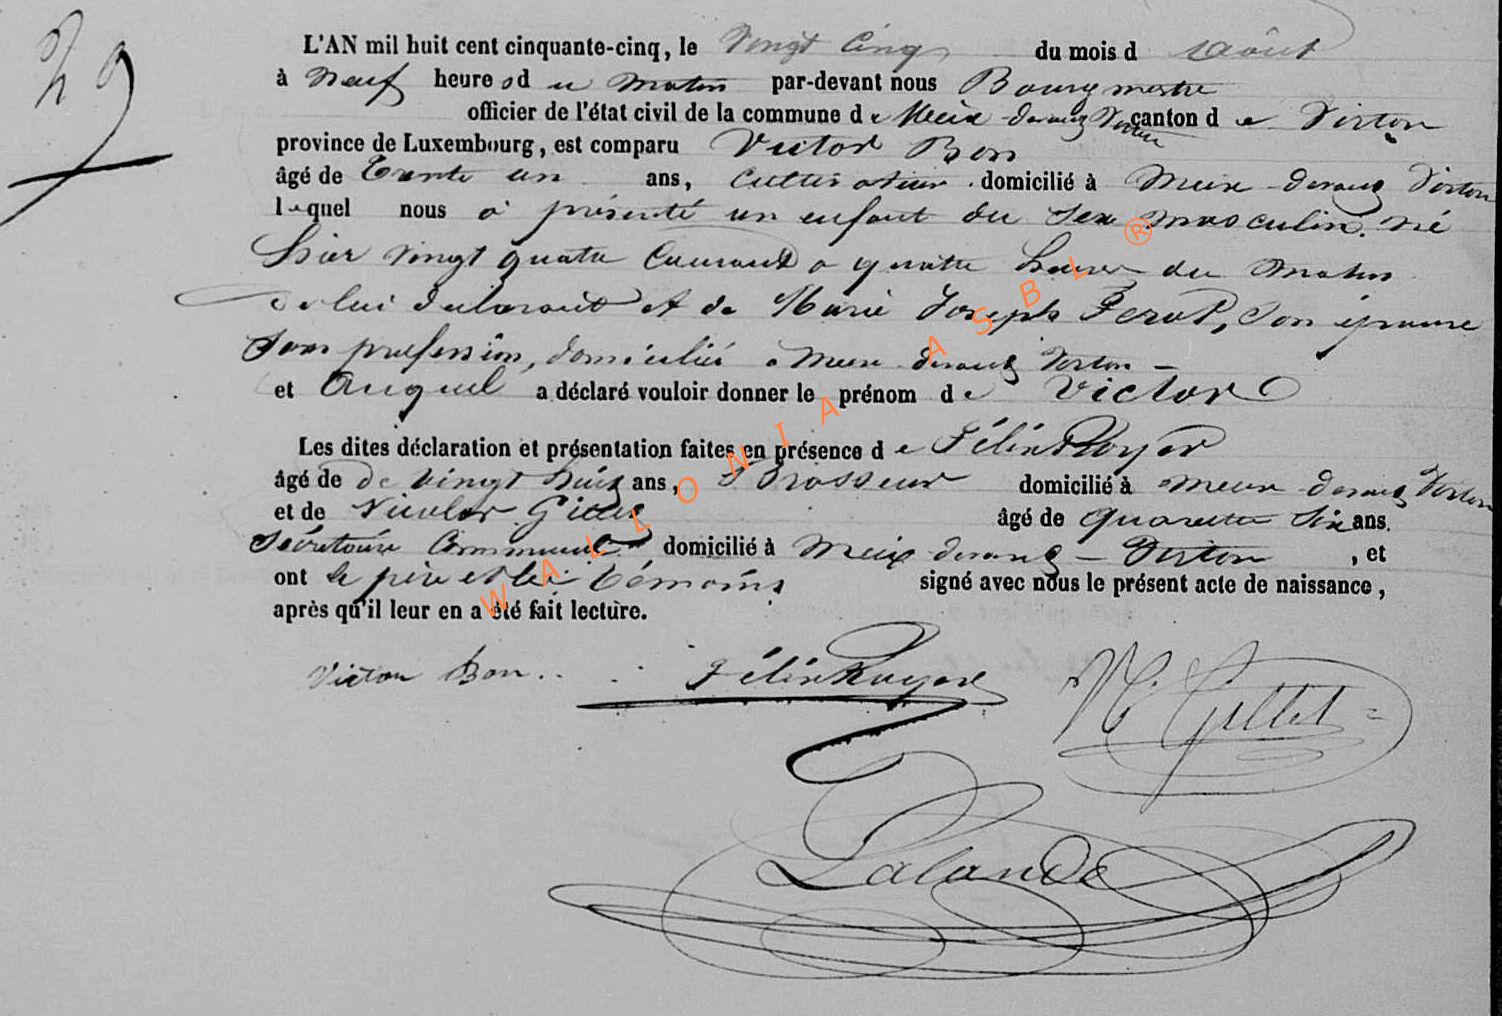 29
L'AN mil huit cent cinquante-cinq, le Vingt Cinq du mois d Août
à Neuf heures du Matin par-devant nous Bourgmestre
officier de l'état civil de la commune de Meix-devant Virton canton de Virton
province de Luxembourg, est comparu Victor Bon
âgé de Trente un ans, Cultivateur domicilié à Meix-devant Virton
lequel nous a présenté un enfant du sexe masculin. né
hier vingt quatre Courant a quatre heures du Matin
de lui declarant et de Marie Joseph Ferot, Son épouse
Sans profession, domiciliés a Meix devant Virton –
et Auquel a déclaré vouloir donner le prénom de Victor
Les dites déclaration et présentation faites en présence de Félix Royer
âgé de de vingt huit ans, Brasseur domicilié à Meix devant Virton
et de Nicolas Gillet âgé de quarante Six ans.
Sécrétaire Communal domicilié à Meix devant – Virton, et
ont le père et les témoins signé avec nous le présent acte de naissance,
après qu'il leur en a été fait lecture.
Victor Bon. Félix Royer N. Gillet
Lalande
WALLONIA ASBL ®